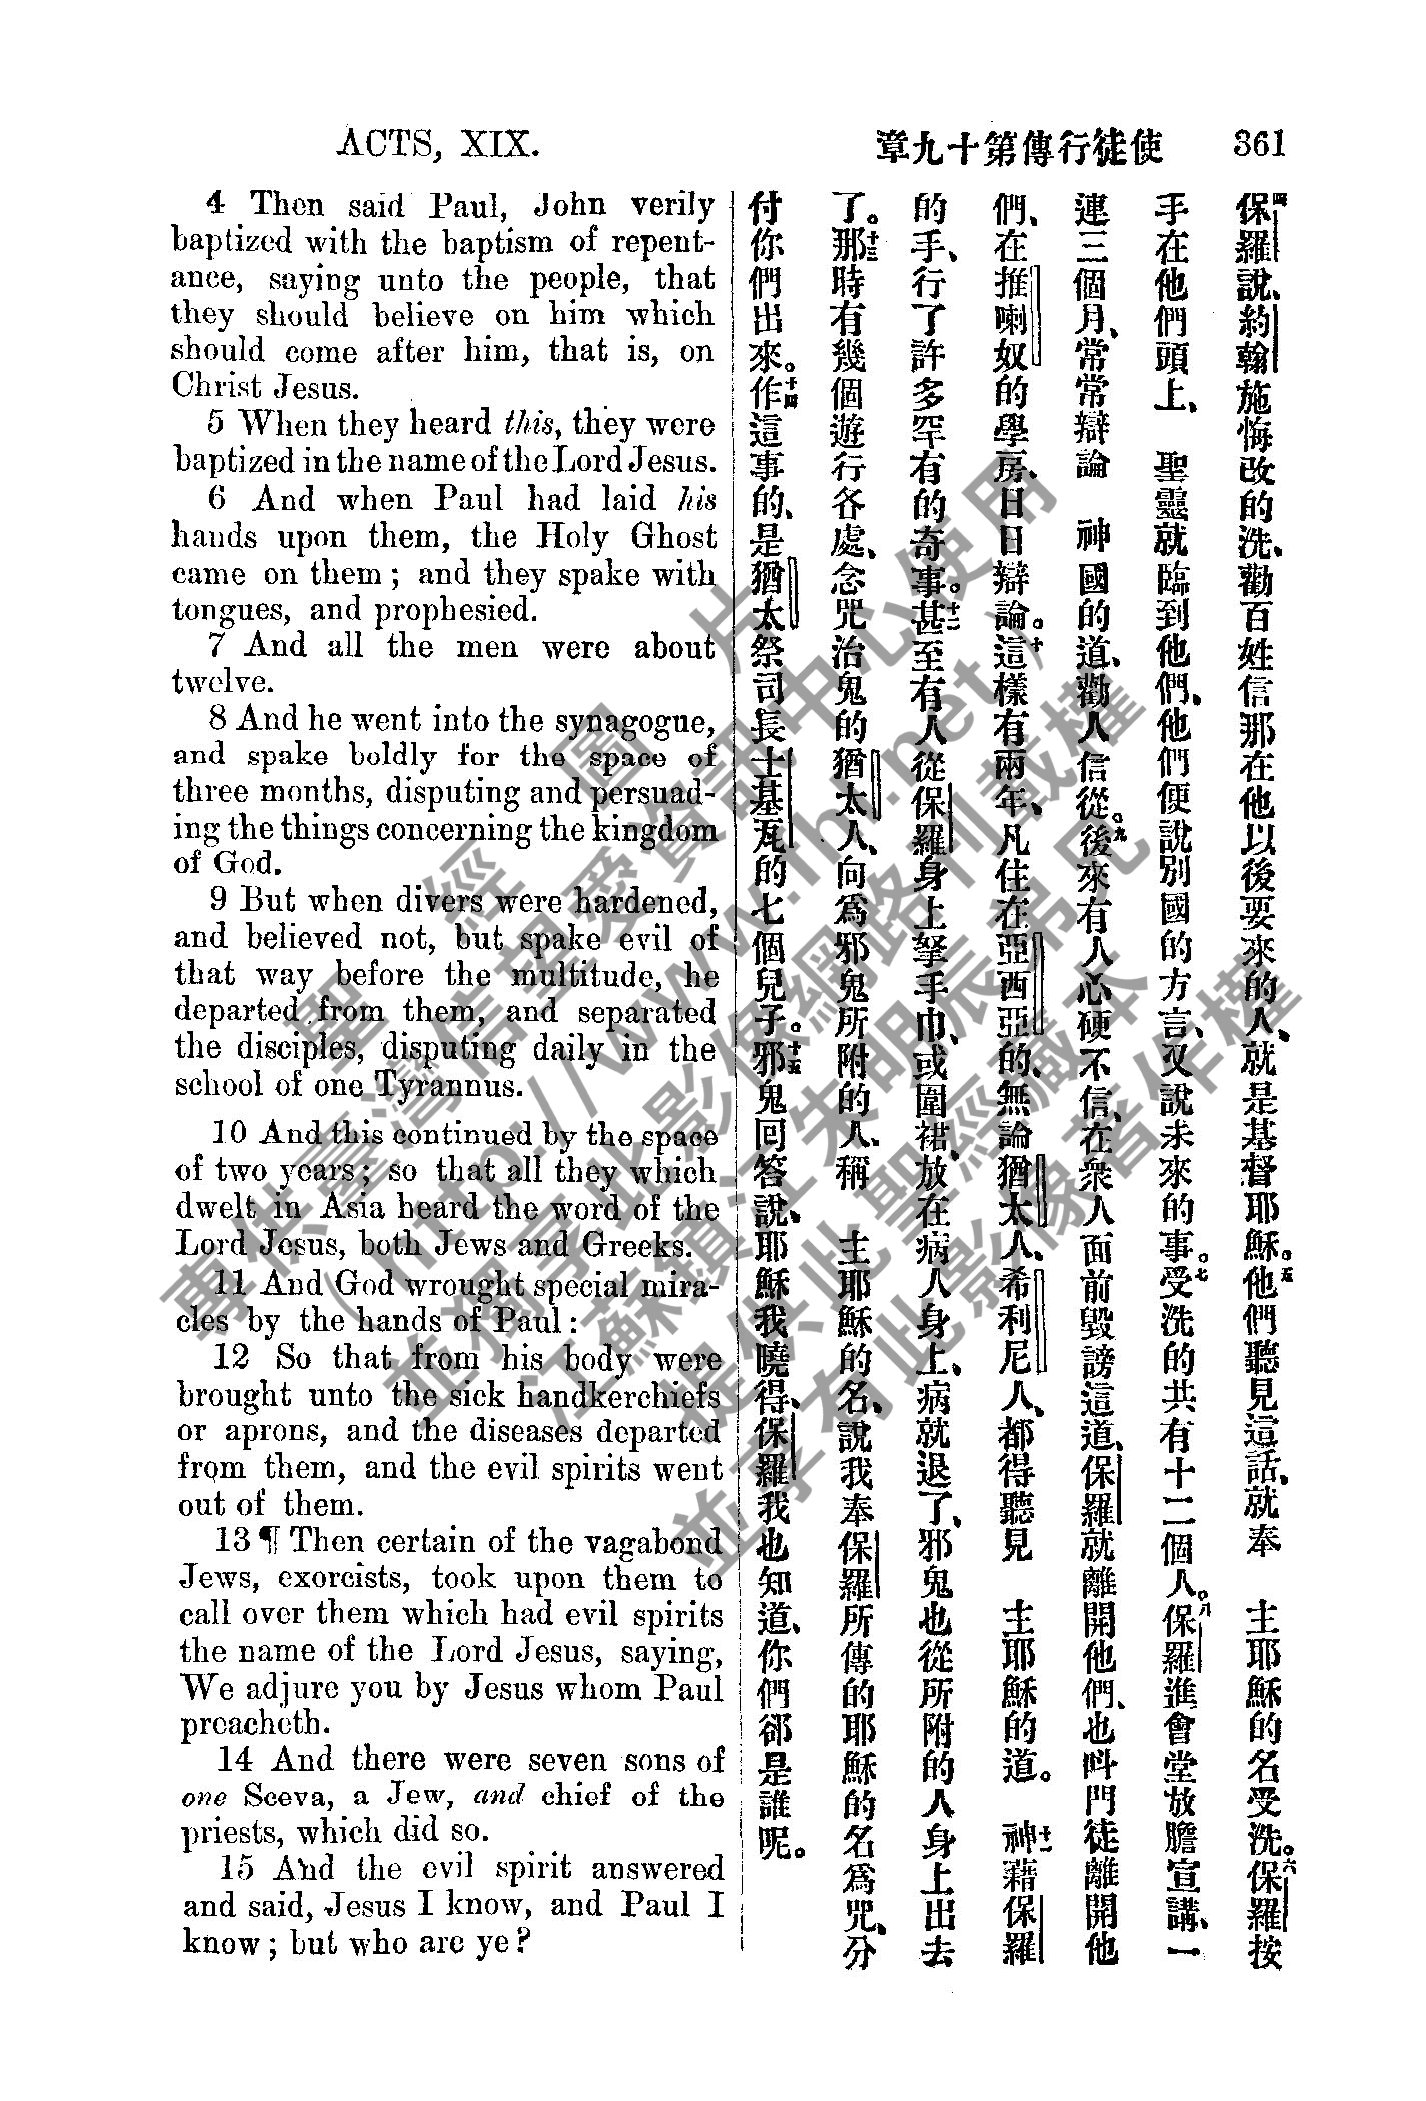 ACTS, XIX.
章九十第傳行徒使
361
4 Then said Paul, John verily
baptized with the baptism of repent-
ance, saying unto the people, that
they should believe on him which
should come after him, that is, on
Christ Jesus.
5 When they heard this, they were
baptized in the name of the Lord Jesus.
6 And when Paul had laid his
hands upon them, the Holy Ghost
came on them; and they spake with
tongues, and prophesied.
7 And all the men were about
twelve.
8 And he went into the synagogue,
and spake boldly for the space of
three months, disputing and persuad-
ing the things concerning the kingdom
of God.
9 But when divers were hardened,
and believed not, but spake evil of
that way before the multitude, he
departed from them, and separated
the disciples, disputing daily in the
school of one Tyrannus.
10 And this continued by the space
of two years; so that all they which
dwelt in Asia heard the word of the
Lord Jesus, both Jews and Greeks.
11 And God wrought special mira-
cles by the hands of Paul:
12 So that from his body were
brought unto the sick handkerchiefs
or aprons, and the diseases departed
from them, and the evil spirits went
out of them.
13 ¶ Then certain of the vagabond
Jews, exorcists, took upon them to
call over them which had evil spirits
the name of the Lord Jesus, saying,
We adjure you by Jesus whom Paul
preacheth.
14 And there were seven sons of
one Sceva, a Jew, and chief of the
priests, which did so.
15 And the evil spirit answered
and said, Jesus I know, and Paul I
know; but who are ye?
四保羅說、約翰施悔改的洗、勸百姓信那在他以後要來的人、就是基督耶穌。五他們聽見這話、就奉 主耶穌的名受洗。六保羅按
手在他們頭上、 聖靈就臨到他們、他們便說別國的方言、又說未來的事。七受洗的共有十二個人。八保羅進會堂放膽宣講、一
連三個月、常常辯論 神國的道、勸人信從。九後來有人心硬不信、在衆人面前毀謗這道、保羅就離開他們、也呌門徒離開他
們、在推喇奴的學房、日日辯論。十這樣有兩年、凡住在亞西亞的、無論猶太人、希利尼人、都得聽見 主耶穌的道。 十一神藉保羅
的手、行了許多罕有的奇事。十二甚至有人從保羅身上拏手巾、或圍裙、放在病人身上、病就退了、邪鬼也從所附的人身上出去
了。十三那時有幾個遊行各處、念咒治鬼的猶太人、向爲邪鬼所附的人、稱 主耶穌的名、說我奉保羅所傳的耶穌的名爲咒、分
付你們出來。十四作這事的、是猶太祭司長士基瓦的七個兒子。十五邪鬼回答說、耶穌我曉得、保羅我也知道、你們郤是誰呢。
聖經圖片
專供臺灣信望愛資訊中心使用
（http://www.fhl.net）
並享有此影像網路刊載權
江蘇鎮江朱明辰弟兄
提供此聖經藏本
並享有此影像著作權